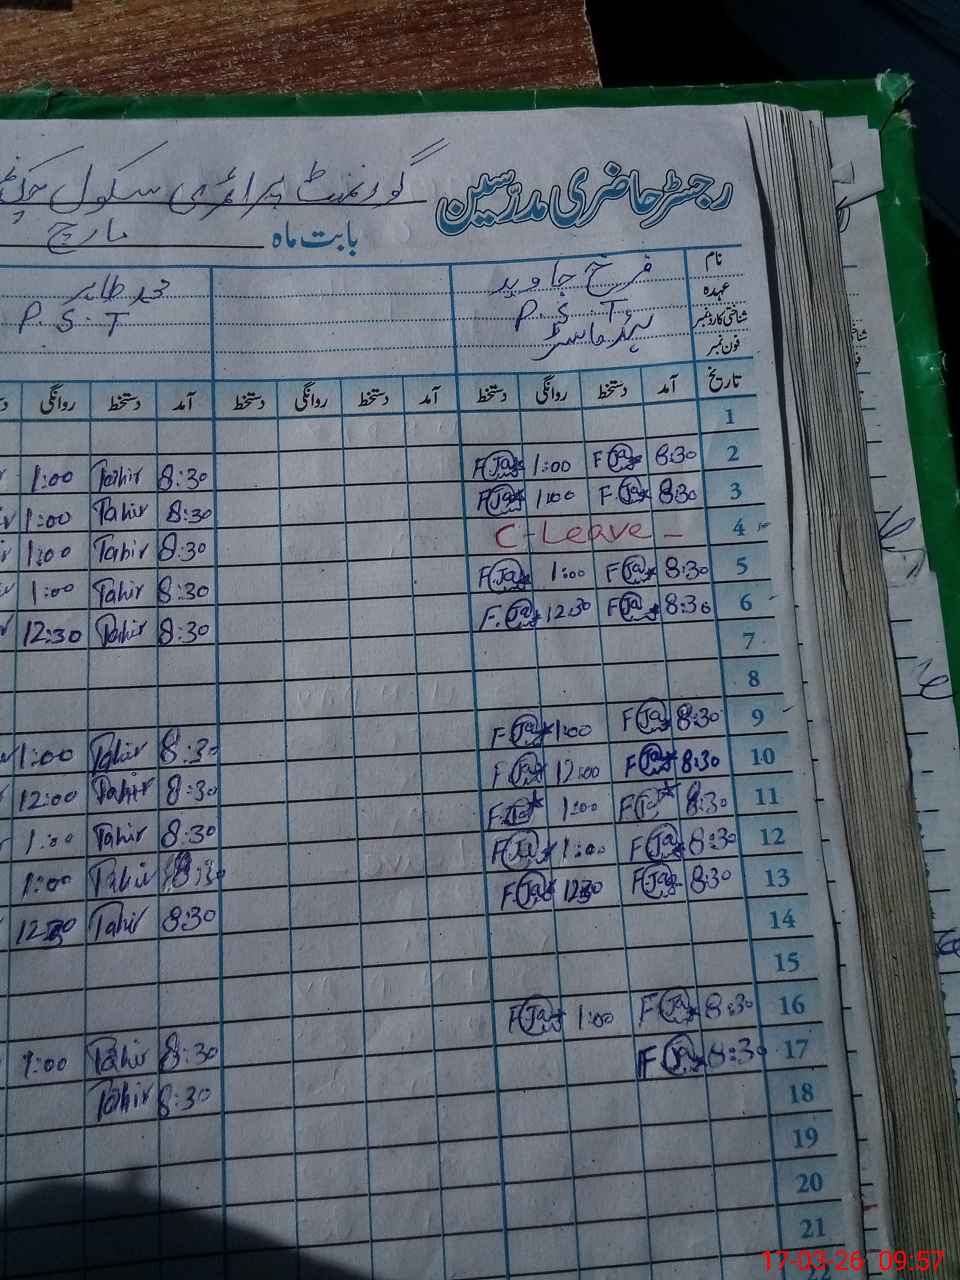 رجسٹر حاضری مدرسین گورنمنٹ پرائمری سکول
بابت ماہ مارچ
نام فرخ جاوید محمد طاہر
عہدہ P.S.T P.S.T
شناختی کارڈ نمبر ہیڈ ماسٹر
فون نمبر
تاریخ آمد دستخط روانگی دستخط آمد دستخط روانگی دستخط آمد دستخط روانگی
1
2 8:30 F Ja 1:00 F Ja 8:30 Tahir 1:00
3 8:30 F. Ja 1:00 F Ja 8:30 Tahir 1:00
4 C-Leave - 8:30 Tahir 1:00
5 8:30 F Ja 1:00 F Ja 8:30 Tahir 1:00
6 8:30 F Ja 12:30 F. Ja 8:30 Tahir 12:30
7
8
9 8:30 F Ja 1:00 F. Ja 8:30 Tahir 1:00
10 8:30 F Ja 12:00 F Ja 8:30 Tahir 12:00
11 8:30 F Ja 1:00 F. Ja 8:30 Tahir 1:00
12 8:30 F Ja 1:00 F Ja 8:30 Tahir 1:00
13 8:30 F Ja 12:30 F. Ja 8:30 Tahir 12:30
14
15
16 8:30 F Ja 1:00 F Ja 8:30 Tahir 1:00
17 8:30 F Ja 8:30 Tahir
18
19
20
21
17-03-26 09:57